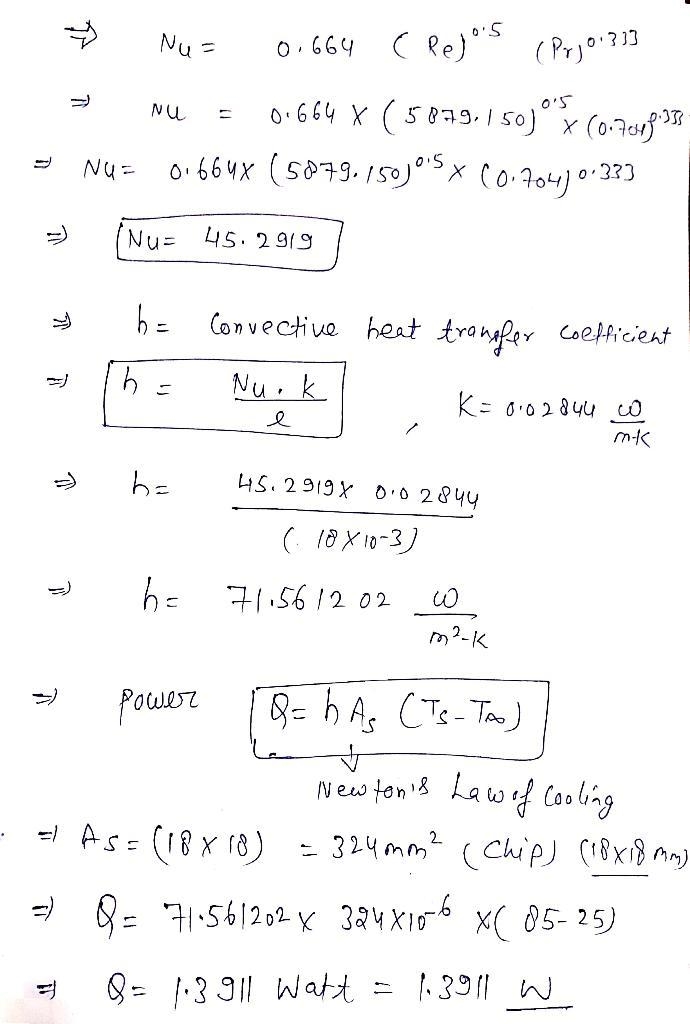 ⇒ Nu = 0.664 (Re)^0.5 (Pr)^0.333
⇒ Nu = 0.664 × (5879.150)^0.5 × (0.704)^0.333
⇒ Nu = 0.664× (5879.150)^0.5 × (0.704)^0.333
⇒ Nu = 45.2919
⇒ h = Convective heat transfer coefficient
⇒ h = Nu . k / l , K = 0.02844 w/m-K
⇒ h = 45.2919 × 0.02844 / (18×10-3)
⇒ h = 71.561202 w/m²-K
⇒ power Q = h As (Ts - T∞)
Newton's Law of Cooling
⇒ As = (18 × 18) = 324 mm² (Chip) (18×18 mm)
⇒ Q = 71.561202 × 324×10^-6 ×( 85-25)
⇒ Q = 1.3911 Watt = 1.3911 W